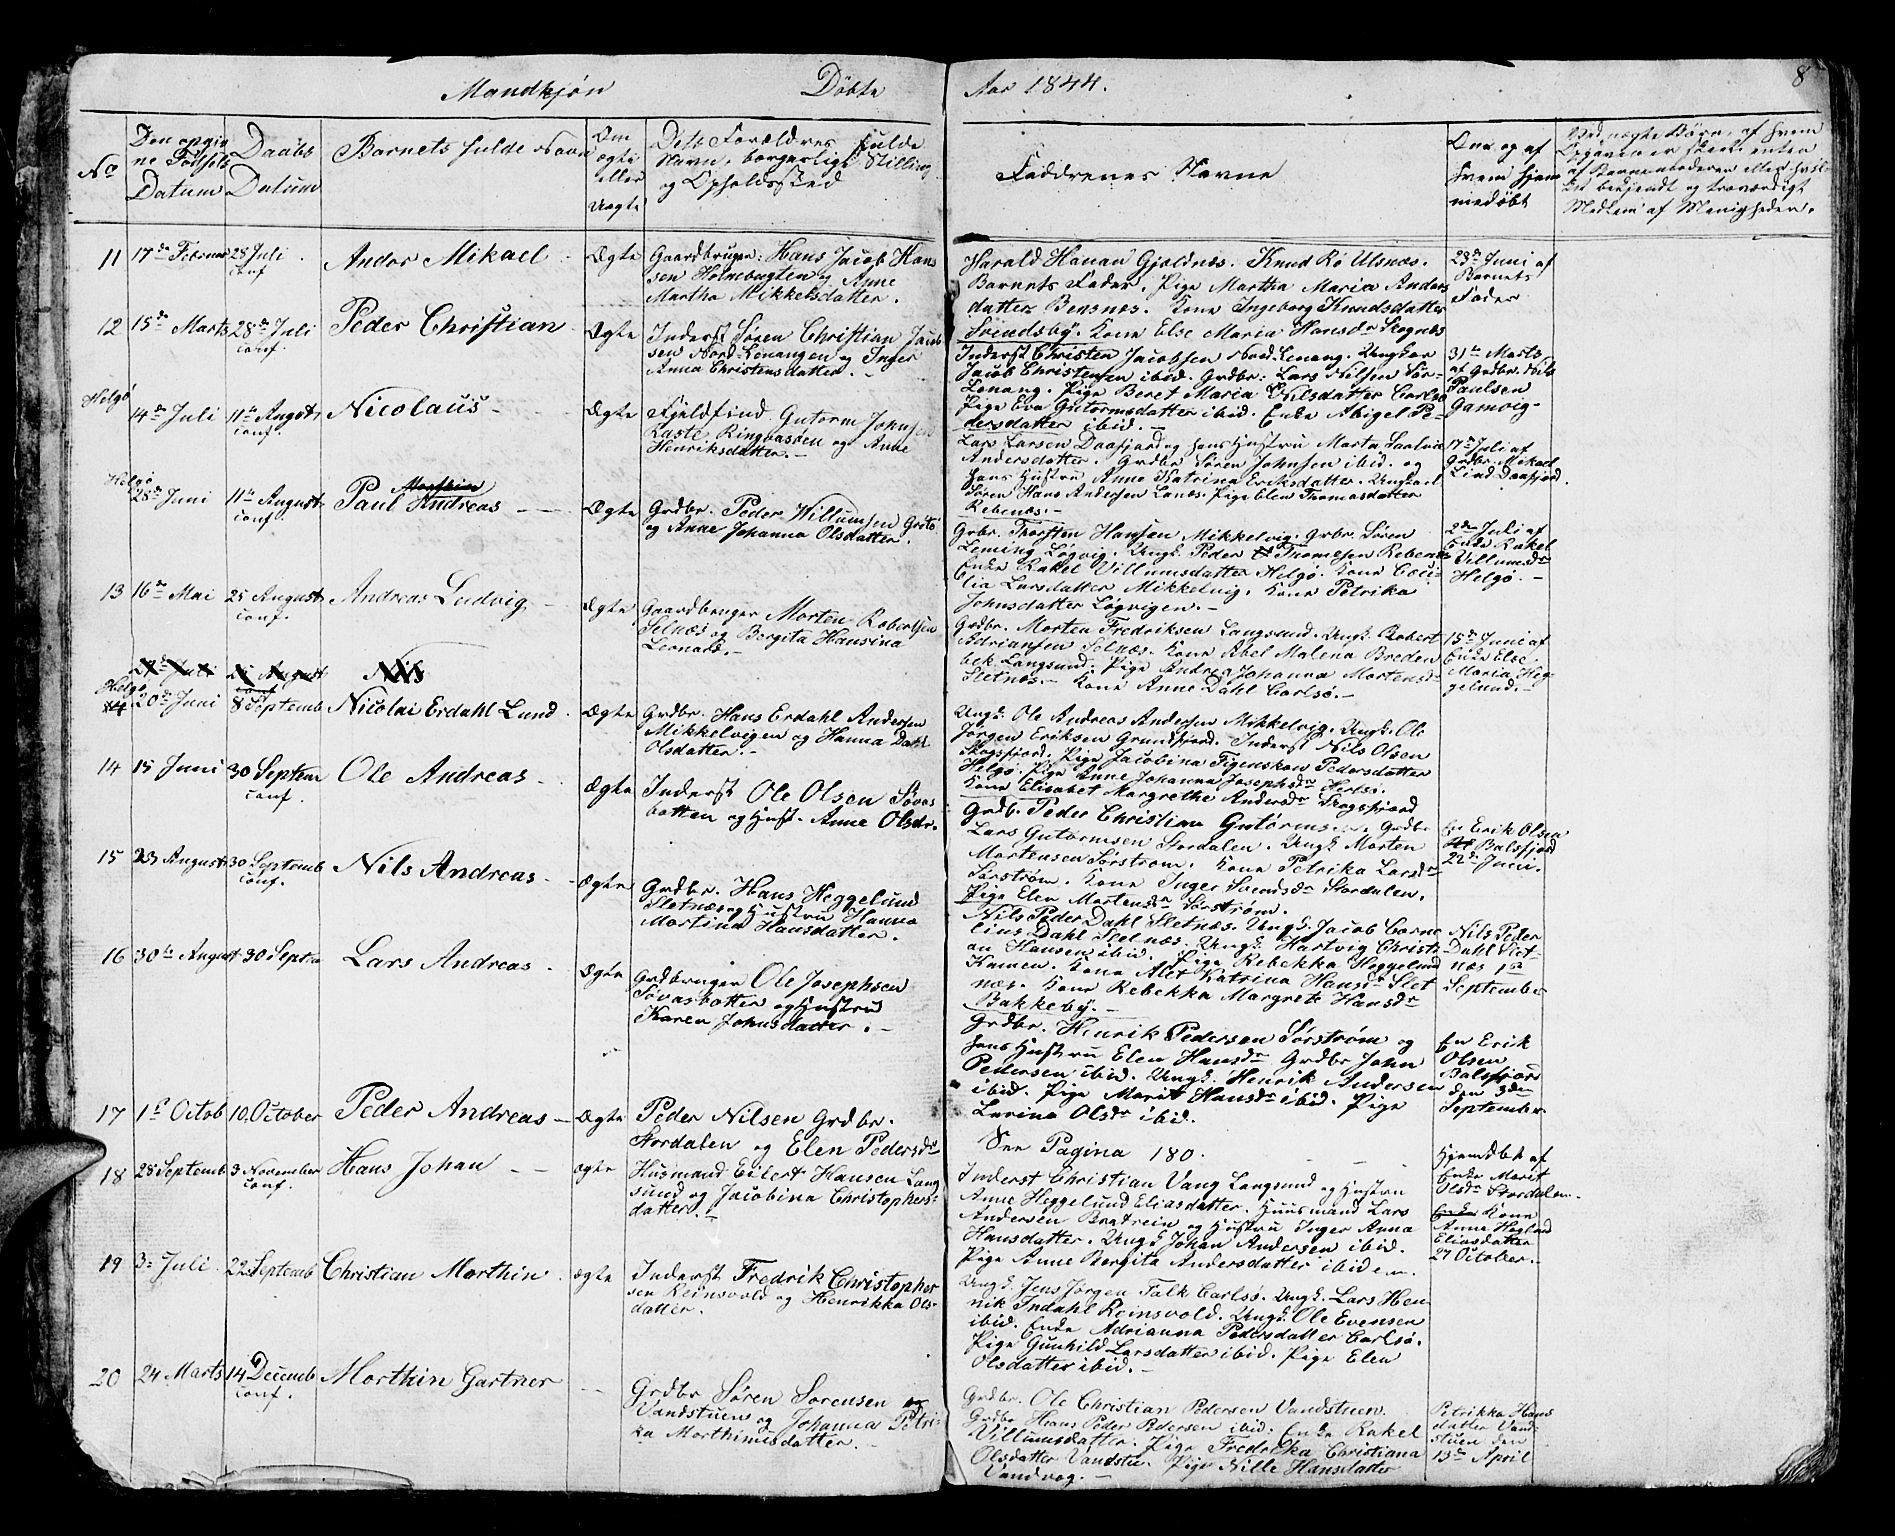 Mandkjøn Døbte Aar 1844. 8
No
Den opgiv
ne Fødsels
Datum
Daabs
Datum
Barnets fulde Navn
Om
ægte
eller
Uægte
Dets Forældres fulde
Navn, borgerlige Stilling
og Opholdssted
Faddrenes Navne
Om og af
hvem hjem
medøbt
Ved uægte Børn, af hvem
Opgaven er skeet, enten
af Barnemoderen eller hvil
ket bekjendt og troværdigt
Medlem af Menigheden.
11 17de Februar 28 Juli
conf
Andor Mikael
Ægte
Gaardbruger Hans Jacob Han
sen Holmebugten og Anne
Martha Mikkelsdatter.
Harald Hanan Gjøldnæs. Knud Rø Ulsnæs.
Barnets Fader. Pige Martha Maria Anders
datter Bensnæs. Kone Ingeborg Knudsdatter
Svindsby. Kone Else Maria Hansdr Skognæs
23de Juni af
Barnets
Fader
12 15de Marts 28de Juli
conf.
Peder Christian
Ægte
Inderst Søren Christian Jacob
sen Nord-Lenangen og Inger
Anna Christensdatter.
Inderst Christen Jacobsen Nord Lenang. Ungkar
Jacob Christensen ibid. Grdbr: Lars Nilsen Sør-
Lenang. Pige Beret Maria Nilsdatter Carlsø
Pige Eva Gutormsdatter ibid. Enke Abigel Pe-
dersdatter ibid.
31te Marts
af Grdbr. Nils
Paulsen
Gamvig-
Helgø
14de Juli 11te Augst
conf.
Nicolaus
Ægte
Fjeldfind Gutorm Johnsen
Kaste Ringvasøen og Anne
Henriksdatter.
Lars Larsen Daafjord og hans Hustru Marta
Andersdatter. Grdbr Søren Johnsen ibid. og
hans Hustru Anne Katrina Eriksdatter. Ungkarl
Søren Hans Andersen Lanæs. Pige Elen Thomasdatter
Rebenæs.
17de Juli af
Grdbr. Mikael
Lind Daafjord.
Helgø
28de Juni 11te August
conf.
Morthin
Paul Andreas
Ægte
Grdbr. Peder Willumsen Grøtø
og Anne Johanna Olsdatter.
Grbr. Thorsten Hansen Mikkelvig. Grbr. Søren
Leming Løgvig. Ungk. Peder Thomesen Rebenæs
Enke Rakel Villumsdatter Helgø. Kone Ceci-
lia Larsdatter Mikkelvig. Kone Petrika
Johnsdatter Løgvigen.
2den Juli af
Enke Rakel
Villumsdr
Helgø.
13 16de Mai 25 August
conf.
Andreas Ludvig
Ægte
Gaardbruger Morten Robertsen
Selnæs og Bergita Hansina
Leonard.
Grdbr. Morten Fredriksen Langsund. Ungk. Robert
Adriansen Selnæs. Kone Abel Malena Breden
bek Langsund. Pige Andrea Johanna Mortensdr
Sletnæs. Kone Anne Dahl Carlsø.
15de Juni af
Enke Else
Maria Heg-
gelund.
Juli August
conf
Nils
Helgø
14 20de Juni 8 Septemb
Nicolai Erdahl Lund.
Ægte
Grdbr. Hans Erdahl Andersen
Mikkelvigen og Hanna Dahl
Olsdatter.
Ungk. Ole Andreas Andersen Mikkelvig. Ungk. Ole
Jørgen Eriksen Grundfjord. Inderst Nils Olsen
Skogsfjord. Pige Jacobina Figenskou Pedersdatter
Helgø. Pige Anne Johanna Josephsdr Herlsø.
Kone Elisabet Margrethe Andersdr Skogsfjord
14 15 Juni 30 Septem
conf.
Ole Andreas
Ægte
Inderst Ole Olsen Søvas
botten og Hust. Anne Olsdr.
Grdb. Peder Christian Gutormsen. Grdbr
Lars Gutormsen Stordalen. Ungk Morten
Mortensen Sørstrøm. Kone Petrika Larsdr
Sørstrøm. Kone Inger Svendsdr Stordalen.
Pige Elen Mortensdr Sørstrøm.
Erik Olsen
Balsfjord
22de Juni.
15 23 August 30 Septemb
conf.
Nils Andreas
Ægte
Grdbr. Hans Heggelund
Sletnæs og Hustru Hanna
Martina Hansdatter.
Nils Peder Dahl Sletnæs. Ungk. Jacob Corne
lius Dahl Sletnæs. Ungk. Hartvig Christi
an Hansen ibid. Pige Rebekka Heggelund
Kamen. Kone Alet Katrina Hansdr Slet
næs. Kone Rebekka Margrete Hansdr
Bakkeby.
Nils Peder
Dahl Slet-
næs 1ste
September
16 30te August 30 Septem
Lars Andreas
Ægte
Grdbruger Ole Josephsen
Søvasbotten og Hustru
Karen Johnsdatter.
Grdbr. Henrik Pedersen Sørstrøm og
hans Hustru Elen Hansdr Grdbr John
Pedersen ibid. Ungk. Henrik Andersen
ibid. Pige Marit Hansdr ibid. Pige
Lavina Olsdr ibid.
Erik
Olsen
Balsfjord
den 3den
September
17 1ste Octob 10. October
Peder Andreas
Ægte
Peder Nilsen Grdbr.
Stordalen og Elen Pedersdr
See Pagina 180.
Hjemdbt af
Enke Marit
Olsdr Stordalen.
18 28 Septemb 3 November
conf.
Hans Johan
ægte
Husmand Eilert Hansen Lang
sund og Jacobina Christophers-
datter.
Inderst Christian Vang Langsund og Hustru
Anne Heggelund Eliasdatter. Huusmand Lars
Andersen Bratrein og Hustru Inger Anna
Hansdatter. Ungk Johan Andersen ibid.
Pige Anne Bergita Andersdatter ibidem.
Enke Kone
Anna Heglund
Eliasdatter
27 October.
19 3de Juli 22 Septemb
Christian Morthin.
ægte
Inderst Fredrik Christopher
sen Reinsvold og Henrikka Ols-
datter.
Ungk. Jens Jørgen Falk Carlsø. Ungk. Lars Hen
rik Indahl Reinsvold. Ungk Ole Evensen
ibid. Enke Adrianna Pedersdatter Carlsø.
Pige Gunhild Larsdatter ibid. Pige Elen
Olsdatter ibid.
20 24 Marts 14 Decemb
conf.
Morthin Gartner
Grdbr Søren Sorensen
Vandstuen og Johanna Petri-
ka Morthinusdatter.
Grdbr. Ole Christian Pedersen Vandstuen.
Grdbr Hans Peder Pedersen ibid. Enke Rakel
Villumsdatter. Pige Fredrikka Christiana
Olsdatter Vandstu. Pige Nille Hansdatter
Vandvag.
Petrikka Hans
datter Vand-
stuen den
13de April